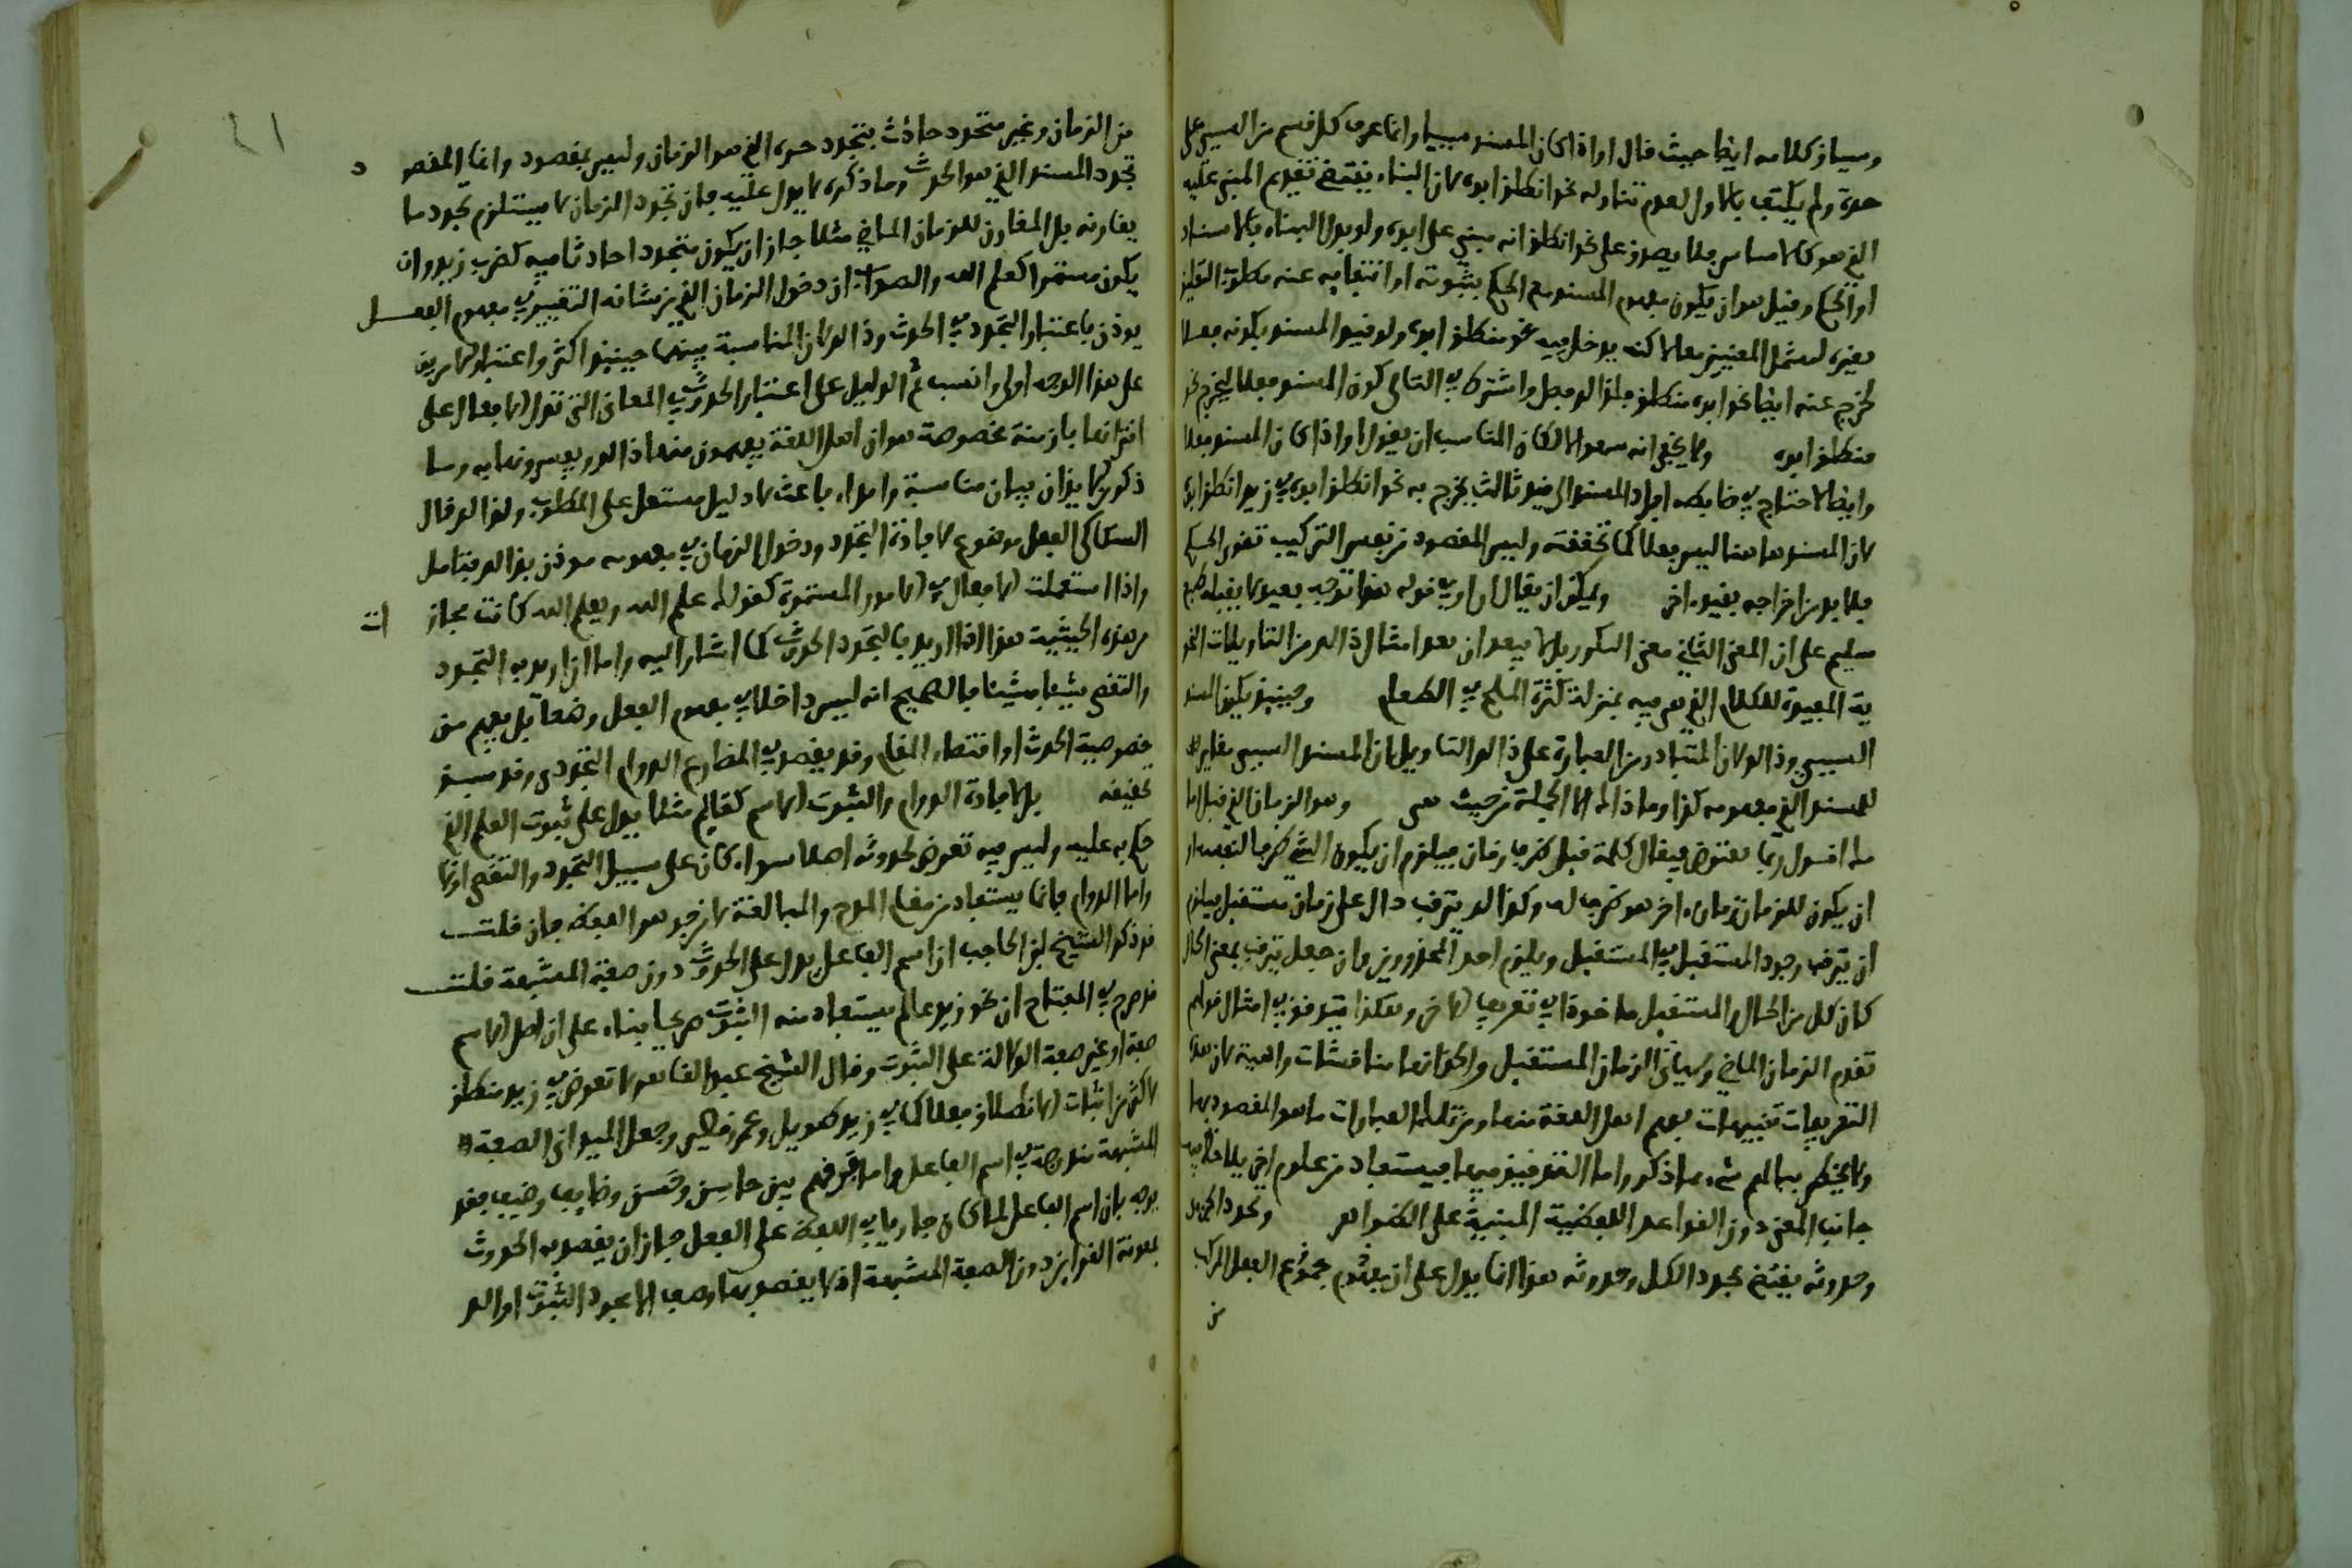 وسياق كلامه ايضا حيث قال او اذا كان المسند سببيا وانما عرف كل قسم من السببي على
حدة ولم يكتف بالاول لعدم تناوله نحو انطلق ابوه لان البناء يقتضي تقديم المبني عليه
الذي هو كالاساس فلا يصدق على نحو انطلق انه مبني على ابوه ولو بدل البناء بالاسناد
او الحكم وقيل هو ان يكون مفهوم المسند مع الحكم بثبوته او انتفايه عنه مطلوب التعليق
بغيره لشمل المعنيين معا لاكنه يدخل فيه نحو منطلق ابوه ولو قيد المسند بكونه فعلا
لخرج عنه ايضا نحو ابوه منطلق فلذلك فصل واشترط في الثاني كون المسند فعلا ليخرج نحو
منطلق ابوه ولا يخفى انه سهو اذ كان المناسب ان يقول او اذا كان المسند فعلا
وايضا لاحتاج في ضابطه افراد المسند الى قيد ثالث يخرج به نحو انطلق ابوه في زيد انطلق ابوه
لان المسند هاهنا ليس فعلا كما تحققته وليس المقصود من نفس التركيب تقوي الحكم
فلا بد من اخراجه بقيد اخر ولا يمكن ان يقال في قوله هذا توجيه بعيد لا يقبله طبع
سليم على ان المعنى الثاني معنى المذكور بل لا يبعد ان يعد امثال ذلك من التاويلات النحو
ية المفيدة للكلام الذي هي فيه بمنزلة كثرة الملح في الطعام وحينئذ يكون المسند
السببي وذلك لان المتبادر من العبارة على ذلك التاويل ان المسند السببي مغاير
للمسند الذي مفهومه كذا وما ذلك الا الجملة من حيث هي وهو الزمان الذي قبل
ما اقول ربما يعترض فيقال كلمة قبل ظرف زمان فيلزم ان يكون الشيء ظرفا لنفسه او
ان يكون للزمان زمان اخر هو ظرف له وكذلك يترقب دال على زمان مستقبل فيلزم
ان يترقب وجود المستقبل في المستقبل ويلزم احد المحذورين وان جعل يترقب بمعنى الحال
كان كل من الحال والمستقبل ماخوذا في تعريف الاخر وهكذا يتوقف في امثال قولهم
تقدم الزمان الماضي وسياتي الزمان المستقبل والحق انها مناقشات واهية لان هذه
التعريفات تنبيهات يفهم اهل اللغة منها ومن تلك العبارات ما هو المقصود بها
ولا يخطر ببالهم شيء مما ذكر واما التدقيق فيها فيستفاد من علوم اخر يلاحظ فيها
جانب المعنى دون القواعد اللفظية المبنية على الظواهر وتجدد الجزء
وحدوثه يقتضي تجدد الكل وحدوثه هذا انما يدل على ان مفهوم مجموع الفعل المركب
من
٤١
من الزمان وغير متجدد حادث بتجدد جزءه الذي هو الزمان وليس بمقصود وانما المقصو
د
تجدد المسند الذي هو الحدث وما ذكره لا يدل عليه فان تجدد الزمان لا يستلزم تجدد ما
يقارنه بل المقارن للزمان الماضي مثلا جاز ان يكون متجددا حادثا فيه كضرب زيد وان
يكون مستمرا كعلم الله والصواب ان دخول الزمان الذي من شانه التغيير في مفهوم الفعل
يوذن باعتبار التجدد في الحدث وذلك لان المناسبة بينهما حينئذ اكثر واعتبار الامرين
على هذا الوجه اولى وانسب ثم الدليل على اعتبار الحدوث في المعاني التي تدل الافعال على
اقترانها بازمنة مخصوصة هو ان اهل اللغة يفهمون منها ذلك ويفسرونها به وما
ذكر ايذان ببيان مناسبة وابداء باعث لا دليل مستقل على المطلوب ولذلك قال
السكاكي الفعل موضوع لافادة التجدد ودخول الزمان في مفهومه موذن بذلك فتامل
واذا استعملت الافعال في الامور المستمرة كقولك علم الله ويعلم الله كانت مجاز
ات
من هذه الحيثية هذا اذا اريد بالتجدد الحدوث كما اشار اليه واما اذا اريد به التجدد
والتقضي شيئا فشيئا فالصحيح انه ليس داخلا في مفهوم الفعل وضعا بل يفهم من
خصوصية الحدث او اقتضاء المقام وقد يقصد في المضارع الدوام التجددي وقد سبق
تحقيقه بل لافادة الدوام والثبوت الاسم كعالم مثلا يدل على ثبوت العلم الذي
حكم به عليه وليس فيه تعرض لحدوثه اصلا سواء كان على سبيل التجدد والتقضي او لا
واما الدوام فانما يستفاد من مقام المدح والمبالغة لا من جوهر اللفظ فان قلت
قد ذكر الشيخ ابن الحاجب ان اسم الفاعل يدل على الحدوث دون صفة المشبهة قلت
قد صرح في المفتاح ان نحو زيد عالم يستفاد منه الثبوت صريحا بناء على ان اصل الاسم
صفة او غير صفة الدلالة على الثبوت وقال الشيخ عبد القاهر لا تعرض في زيد منطلق
لاكثر من اثبات الانطلاق فعلا كما في زيد طويل وعمر قصير وجعل الميداني الصفة
المشبهة مندرجة في اسم الفاعل واما فرقهم بين حاسن وحسن وضايق وضيق فقد
يوجه بان اسم الفاعل لما كان جاريا في اللفظ على الفعل جاز ان يقصد به الحدوث
بمعونة القراين دون الصفة المشبهة اذ لا يقصد بها وضعا الا مجرد الثبوت او الد